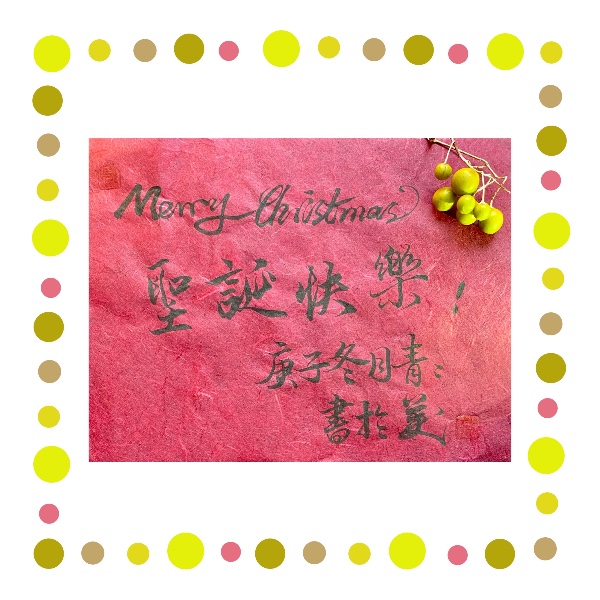 Merry Christmas
聖誕快樂!
庚子冬月晴〻
書於美